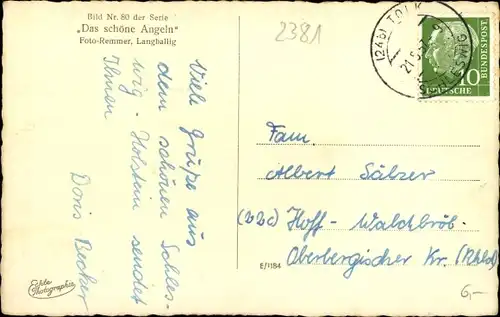 Bild Nr. 80 der Serie
"Das schöne Angeln"
Foto-Remmer, Langballig
2381
(24b) TOLK
21.5.5
SCHLESWIG
10
DEUTSCHE
BUNDESPOST
Viele Grüße aus
dem schönen Schles-
wig-Holstein sendet
Ihnen
Doris Becker
Fam.
Albert Sälzer
(22c) Hoff-Waldbröl.
Oberbergischer Kr. (Rhld)
E/1184
Echte
Photographie
6,-